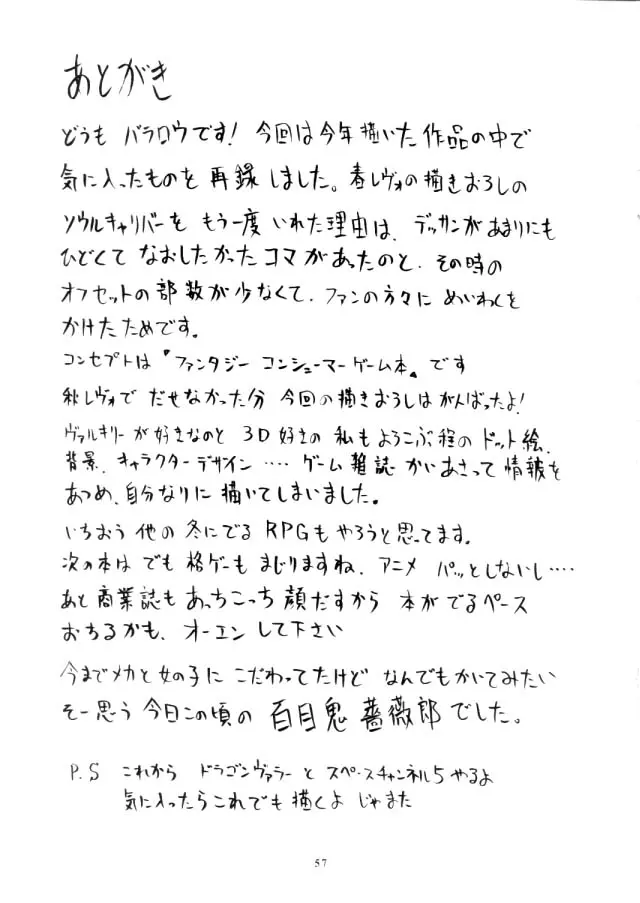 あとがき
どうも バラロウです! 今回は今年描いた作品の中で
気に入ったものを 再録しました。春レヴォの描きおろしの
ソウルキャリバーを もう一度 いれた理由は、デッサンがあまりにも
ひどくて なおしたかったコマがあったのと、その時の
オフセットの部数が少なくて、ファンの方々に めいわくを
かけたためです。
コンセプトは『ファンタジー コンシューマーゲーム本』です
秋レヴォで だせなかった分 今回の描きおろしは がんばったよ!
ヴァルキリーが好きなのと 3D好きの 私もよろこぶ程の ドット絵、
背景、キャラクターデザイン‥‥ ゲーム雑誌 かいあさって 情報を
あつめ、自分なりに 描いてしまいました。
いちおう 他の 冬にでる RPGも やろうと思ってます。
次の本は でも 格ゲーも まじりますね、アニメ パッとしないし‥‥
あと 商業誌も あっちこっち 顔だすから 本がでるペース
おちるかも、オーエン して下さい
今までメカと女の子に こだわってたけど なんでもかいてみたい
そー思う 今日この頃の 百目鬼 薔薇郎でした。
P.S これから ドラゴンヴァラーと スペースチャンネル5 やるよ
気に入ったらこれでも 描くよ じゃまた
57